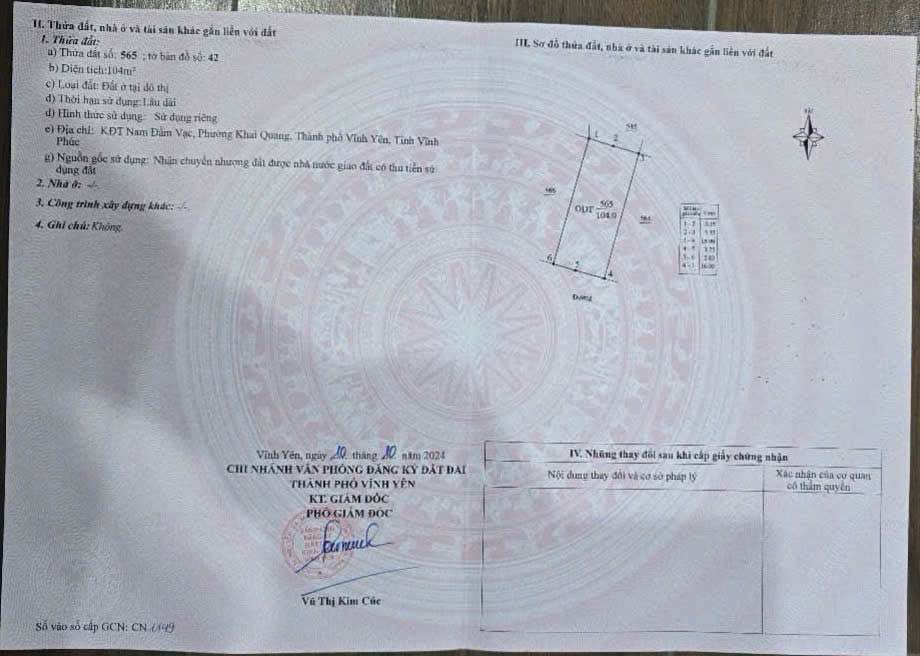 II. Thửa đất, nhà ở và tài sản khác gắn liền với đất
1. Thửa đất:
a) Thửa đất số: 565 ; tờ bản đồ số: 42
b) Diện tích:104m²
c) Loại đất: Đất ở tại đô thị
d) Thời hạn sử dụng:Lâu dài
đ) Hình thức sử dụng: Sử dụng riêng
e) Địa chỉ: KĐT Nam Đầm Vạc, Phường Khai Quang, Thành phố Vĩnh Yên, Tỉnh Vĩnh
Phúc
g) Nguồn gốc sử dụng: Nhận chuyển nhượng đất được nhà nước giao đất có thu tiền sử
dụng đất
2. Nhà ở: -/-
3. Công trình xây dựng khác: -/-
4. Ghi chú: Không.
III. Sơ đồ thửa đất, nhà ở và tài sản khác gắn liền với đất
1
2
3
ODT
565
104.0
6
5
4
Đường
1-2
2-3
Vĩnh Yên, ngày 10 tháng 10 năm 2024
CHI NHÁNH VĂN PHÒNG ĐĂNG KÝ ĐẤT ĐAI
THÀNH PHỐ VĨNH YÊN
KT. GIÁM ĐỐC
PHÓ GIÁM ĐỐC
Vũ Thị Kim Cúc
Số vào sổ cấp GCN: CN
IV. Những thay đổi sau khi cấp giấy chứng nhận
Nội dung thay đổi và cơ sở pháp lý
Xác nhận của cơ quan
có thẩm quyền